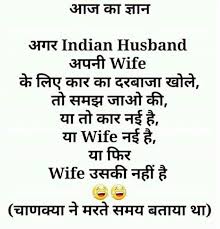 आज का ज्ञान
अगर Indian Husband
अपनी Wife
के लिए कार का दरबाजा खोले,
तो समझ जाओ की,
या तो कार नई है,
या Wife नई है,
या फिर
Wife उसकी नहीं है
😄😄
(चाणक्या ने मरते समय बताया था)